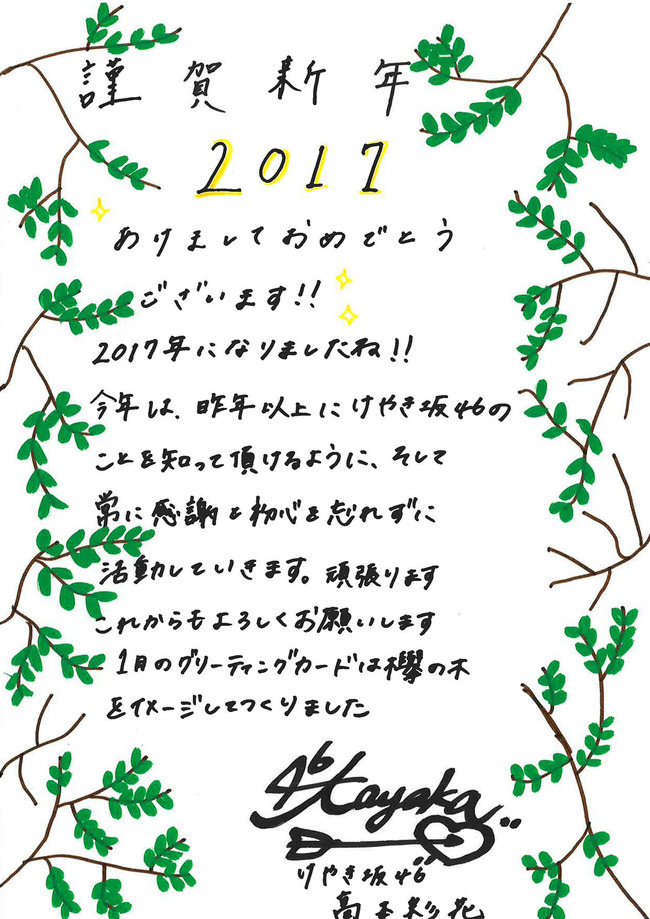 謹賀新年
2017
あけましておめでとう
ございます!!
2017年になりましたね!!
今年は、昨年以上にけやき坂46の
ことを知って頂けるように、そして
常に感謝と初心を忘れずに
活動していきます。頑張ります
これからもよろしくお願いします
1月のグリーティングカードは欅の木
をイメージしてつくりました
46 Ayaka
けやき坂46
高本彩花